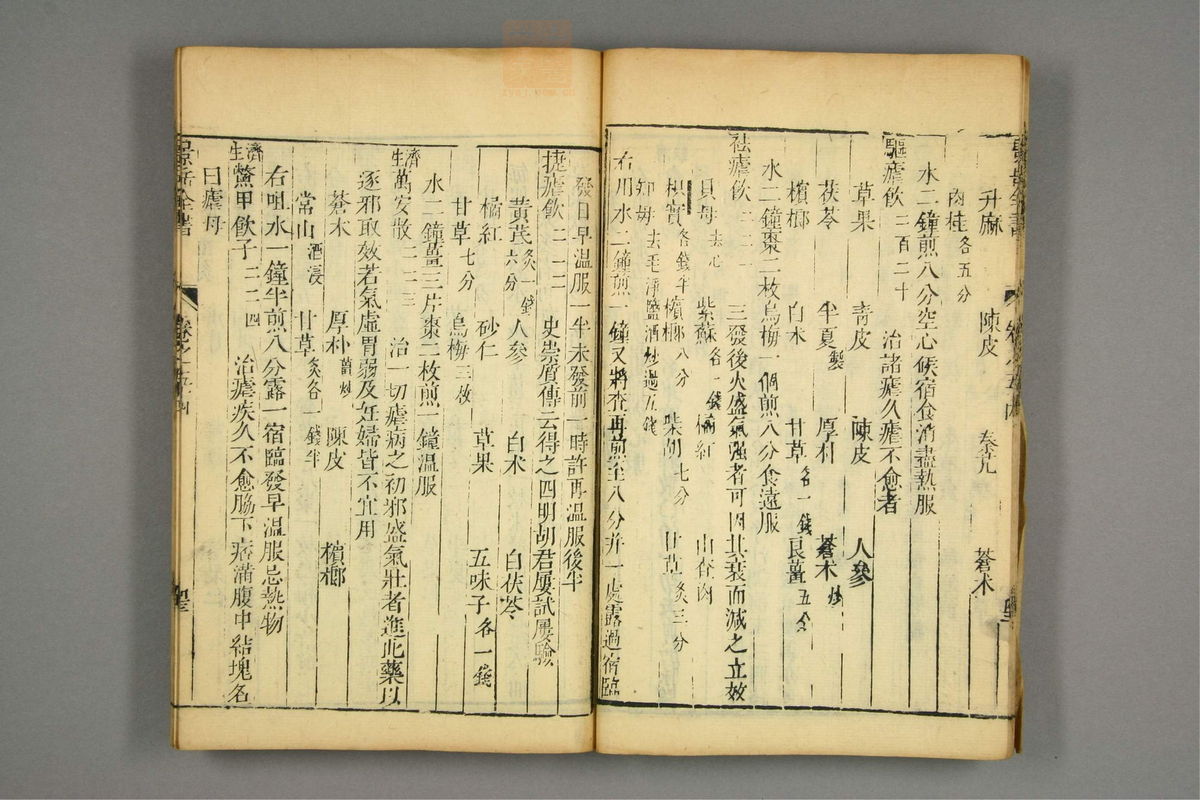 升麻 陳皮 蒼术
肉桂各五分
水二鐘煎八分空心候宿食消盡熱服
驅瘧飲二百二十 治諸瘧久瘧不愈者
草果 青皮 陳皮 人參
茯苓 半夏製 厚朴 蒼术炒
檳榔 白术 甘草各一錢 良薑五分
水二鐘棗二枚烏梅一個煎八分食遠服
祛瘧飲二二一 三發後火盛氣强者可因其衰而減之立效
貝母去心 紫蘇各一錢 橘紅 山查肉
枳實各錢半 檳榔八分 柴胡七分 甘草炙三分
知母去毛淨鹽酒炒過五錢
右用水二鐘煎一鐘又將查再煎至八分并一處露過宿臨
發日早温服一半未發前一時許再温服後半
捷瘧飲二二二 史崇質傳云得之四明胡君屢試屢驗
黃芪炙一錢六分 人參 白术 白茯苓
橘紅 砂仁 草果 五味子各一錢
甘草七分 烏梅三枚
水二鐘薑三片棗二枚煎一鐘温服
濟生萬安散二二三 治一切瘧病之初邪盛氣壯者進此藥以
逐邪取效若氣虛胃弱及妊婦皆不宜用
蒼术 厚朴薑炒 陳皮 檳榔
常山酒浸 甘草炙各一錢半
右咀水一鐘半煎八分露一宿臨發早温服忌熱物
濟生鱉甲飲子二二四 治瘧疾久不愈脇下痞滿腹中結塊名
曰瘧母
景岳全書 卷之五十四